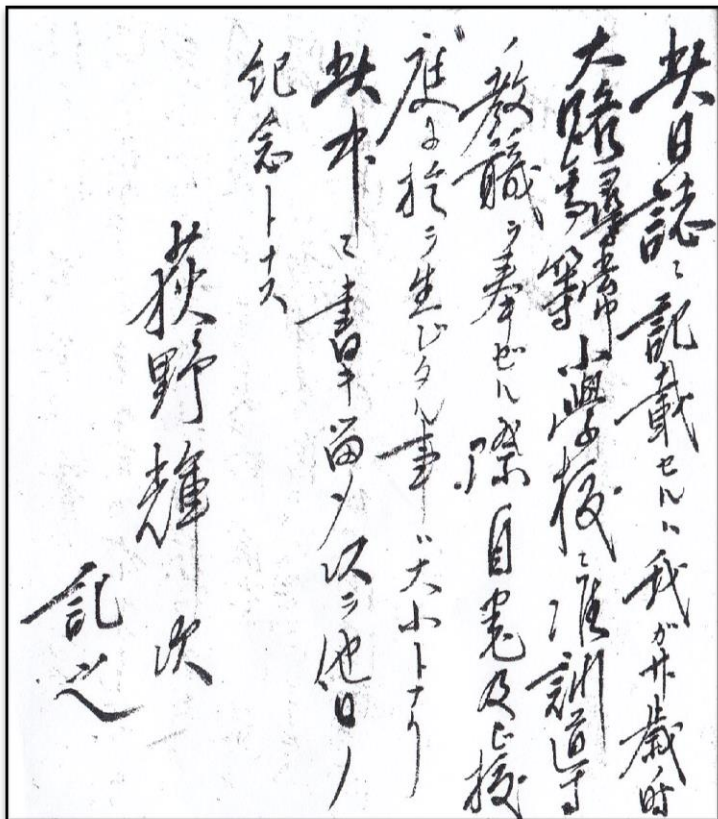 此日誌ニ記載セルハ我ガ廿歳時
大賂高等尋常小學校ニ准訓導
ノ教職ヲ奉ゼル際自宅及ビ校
庭ニ於テ生ジタル事ハ大小トナク
此中ニ書キ留メ以テ他日ノ
紀念トナス
荻野輝次
記之